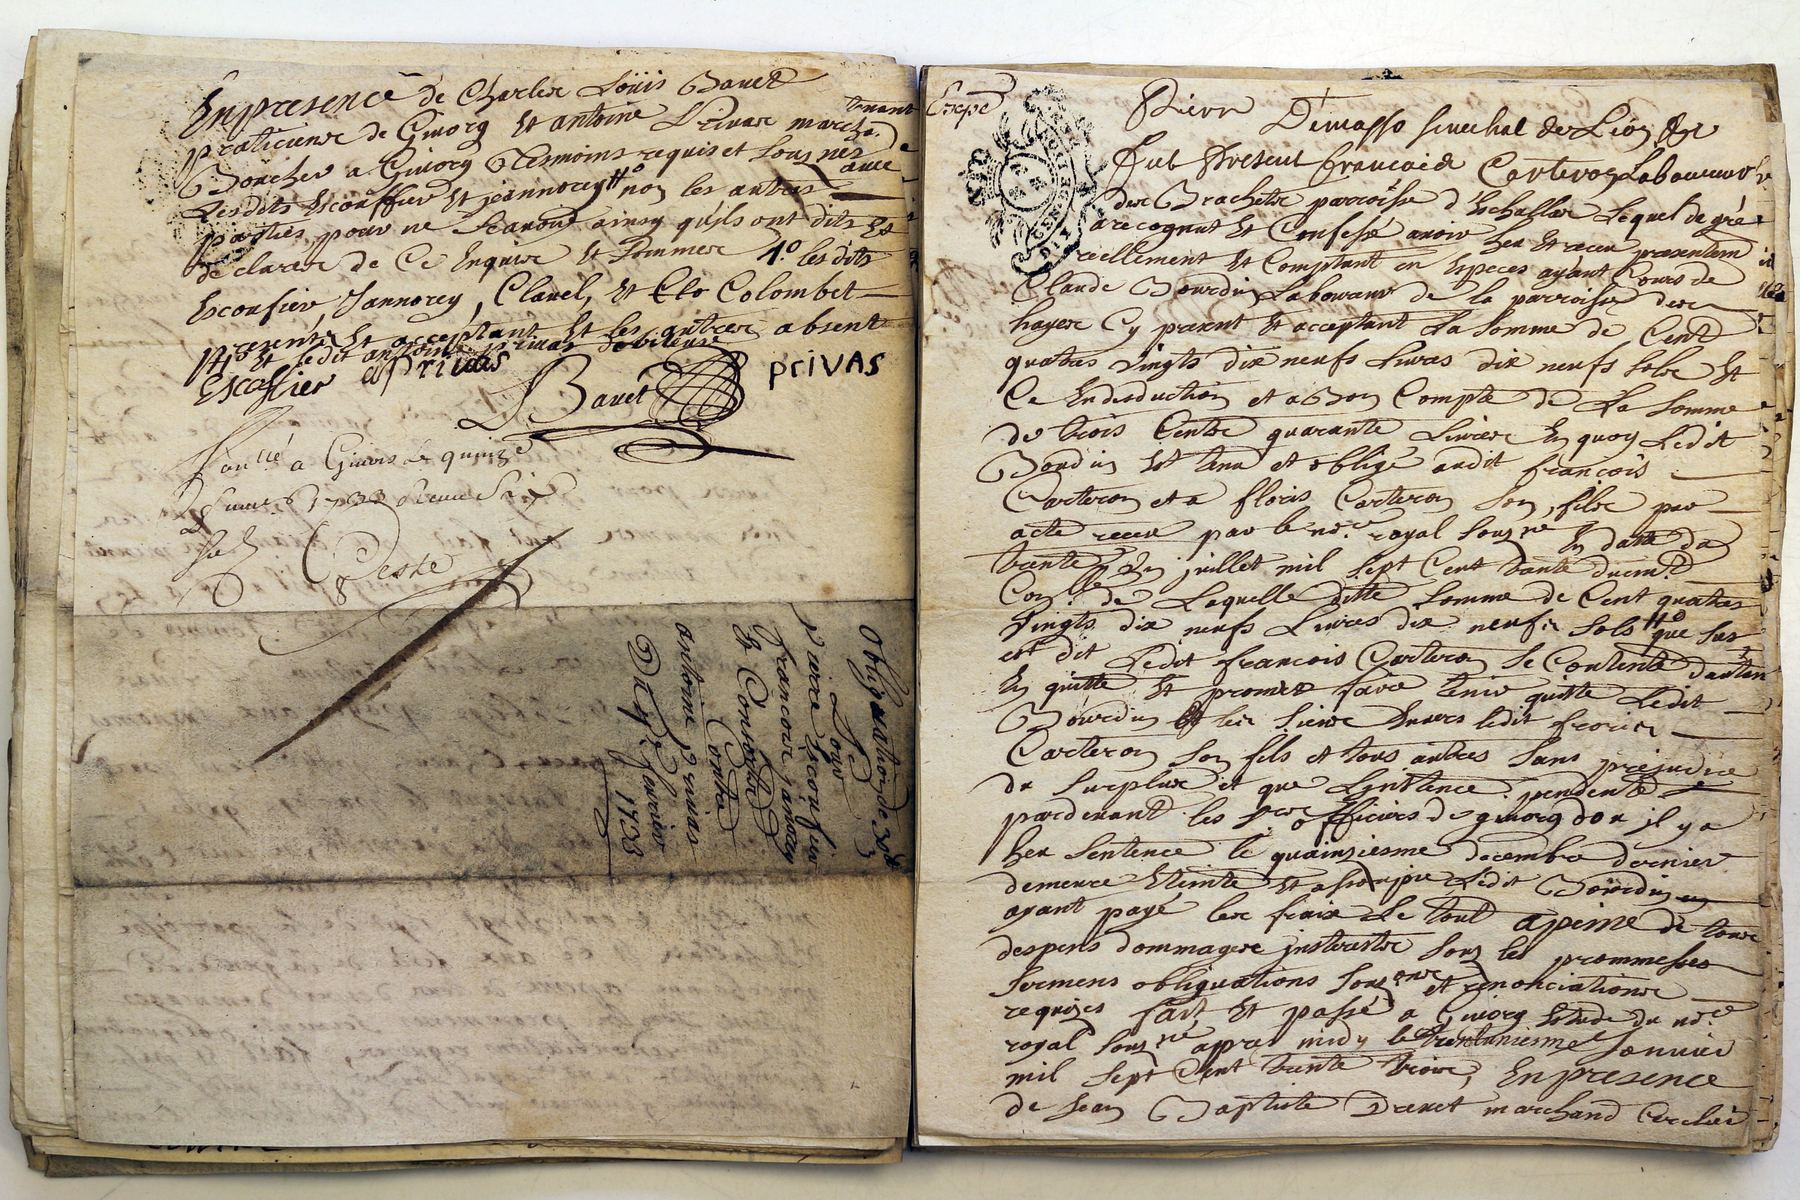 En presence de Charles Loüis Bauet
praticiens de Giuorg et antoine Priuas marchd.
tenant
Boucher a Giuorg tesmoins requis et sousnés
auec
Lesdits Escouffier et jeannorey non les autres
parties pour ne sçauoir ainsy quils ont dits et
declarer de ce Enquis et sommer 4.º lesdits
Escoufier, Jannorey, Clauel, et Clo Colombet
presents et acceptant et les autres absent
et ledit antoine Priuas debiteur
Escoffier a Priuas
Bauet
PRIVAS
Controllé a Giuors Le quinze
Januier 1733 Receu Six
Sols
Obligation de 30#
Pour
Pierre Escouffier
francois janorey
et Consorts
Contre
antoine Priuas
Du 4e Januier
1733
Expé
GEN DE LION
DIX
Pierre Demasso senechal de Lion sçauoir
fut present francois Carteron Laboureur
des Brachets paroisse d'Echallas Lequel de gré
a recognut et Confessé auoir heu et receu presentem
reellement et Comptant en Especes ayant Cours de
Claude Bourdin Laboureur de la parroisse des
hayes Cy present et acceptant La somme de Cent
quatres Vingts dix neufs Liures dix neufs sols et
Ce En deduction et a Bon Compte de La somme
de trois Cents quarante Liures En quoy Ledit
Bourdin Est tenu et obligé audit francois
Carteron et a floris Carteron son fils par
acte receu par le nore. royal sousné En datte du
trente Un juillet mil sept Cent trente deux
Con.lé de Laquelle ditte somme de Cent quatres
Vingts dix neufs Liures dix neufs sols que sus
est dit Ledit francois Carteron se Contente d'autan
En quitte et promet faire tenir quitte Ledit
Bourdin et les siens Enuers Ledit floris
Carteron son fils et tous autres sans prejudice
du surplus et que Linstance pendente
pardeuant les srs officiers de giuorg dont il y a
heu sentence le quainziesme decembre dernier
demeure Eteinte et assoupie Ledit Bourdin
ayant payé les fraix Le tout a peine de tous
despens dommages interests sous les prommesses
sermens obliguations sousons et renonciations
requises fait et passé a Giuorg Estude du nore.
royal sousné apres midy le trentuniesme Januier
mil sept Cent trente trois, En presence
de Jean Baptiste Dreuet marchand